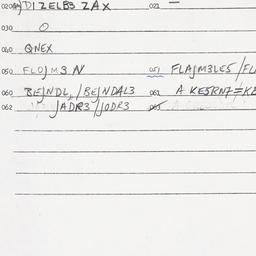 020 DIZELB3 ZAX 021 —
030 O
040 QNEX
050 FLOJM3N 051 FLAJM3LE5/FL
060 BEJNDL,/BEJNDAL3 061 A KE5RN7=KE
062 JADR3/JODR3 063